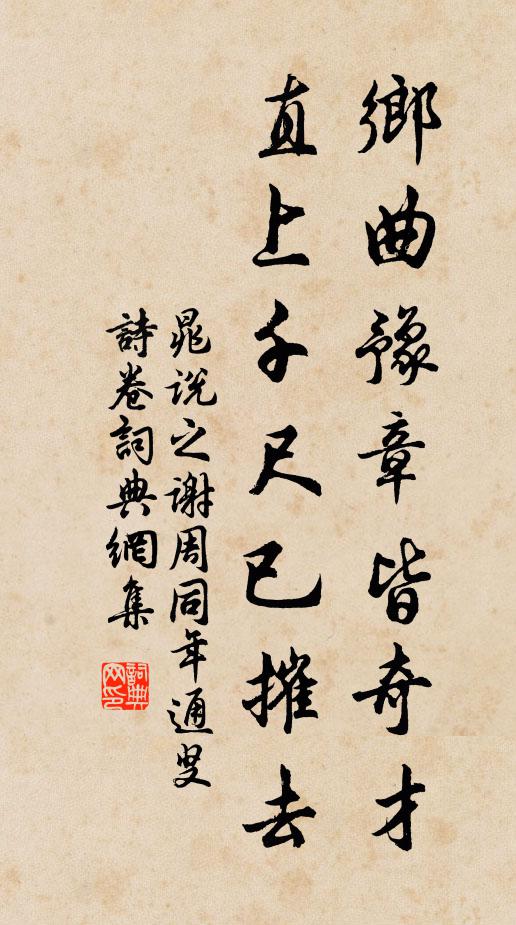 鄉曲豫章皆奇才
直上千尺已摧去
晁说之谢周同年通叟
詩卷詞典網集
詞典网印